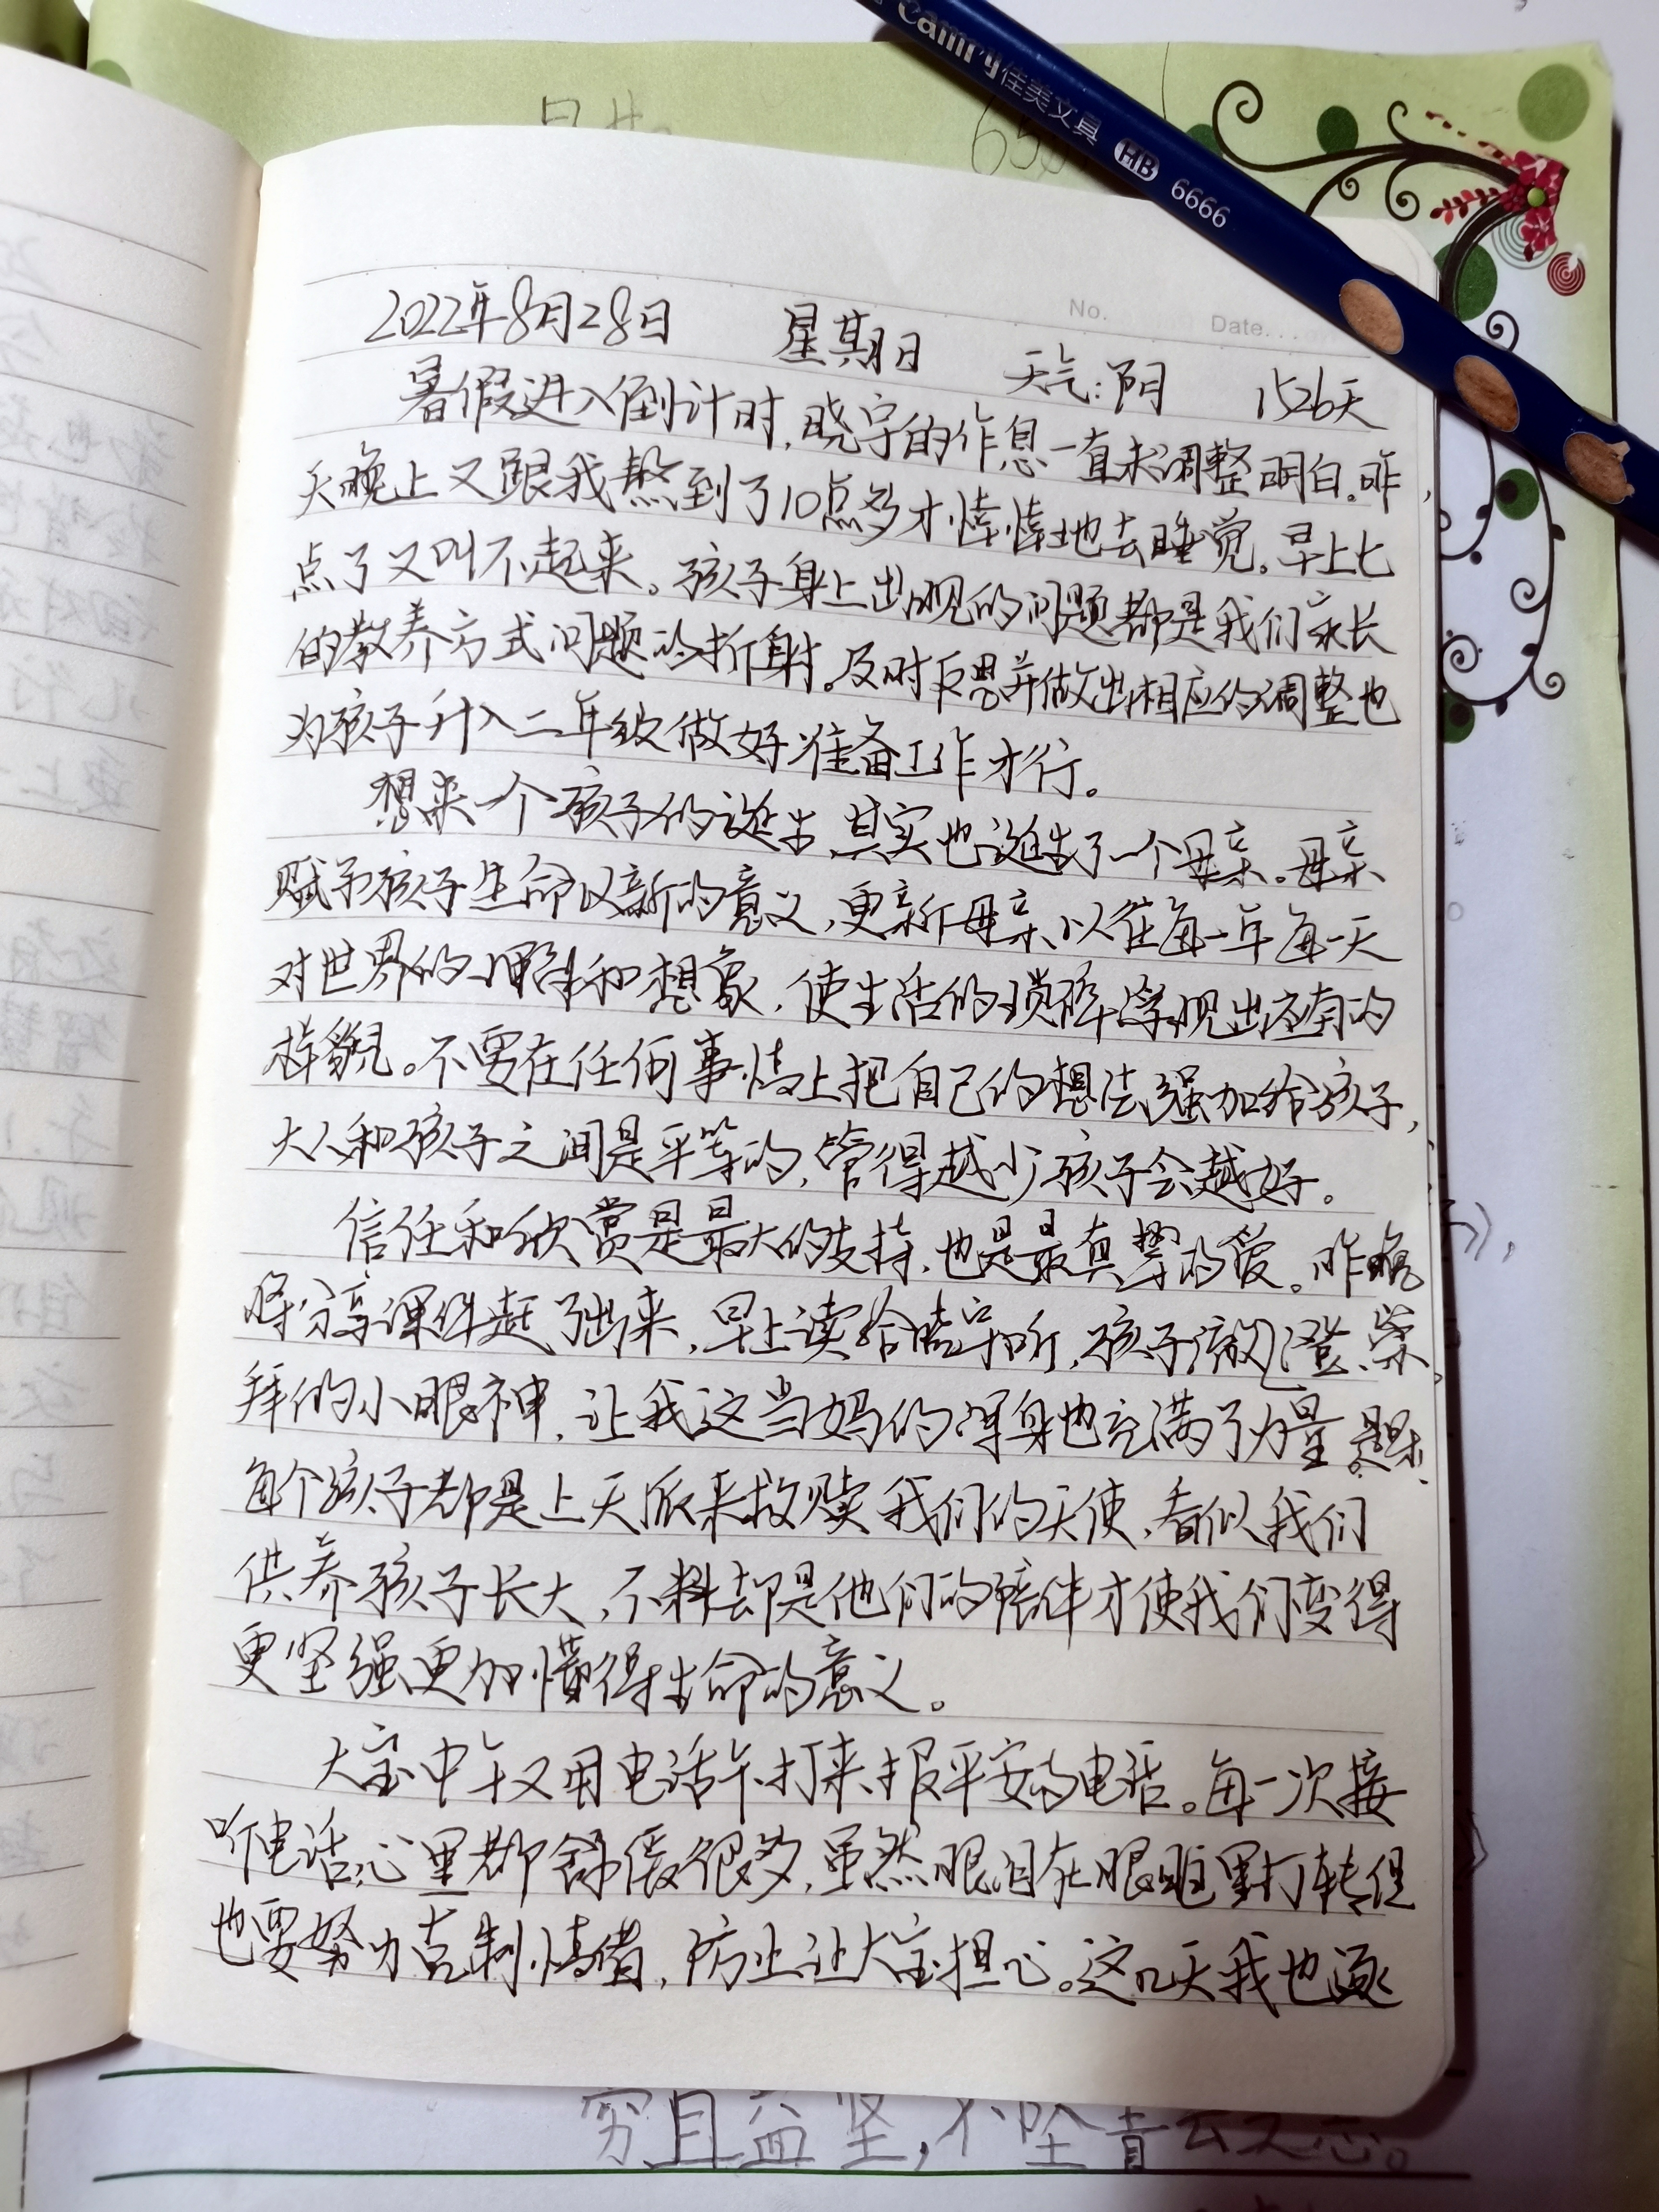 Camry佳美文具 HB 6666
No. Date
2022年8月28日 星期日 天气:阴 1526天
暑假进入倒计时,晓宇的作息一直未调整明白。昨
天晚上又跟我熬到了10点多才悻悻地去睡觉。早上七
点了又叫不起来。孩子身上出现的问题都是我们家长
的教养方式问题的折射。及时反思并做出相应的调整也
为孩子升入二年级做好准备工作才行。
想来一个孩子的诞生,其实也诞生了一个母亲。母亲
赋予孩子生命以新的意义,更新母亲以往每一年每一天
对世界的理解和想象,使生活的琐碎浮现出应有的
样貌。不要在任何事情上把自己的想法强加给孩子,
大人和孩子之间是平等的,管得越少孩子会越好。
信任和欣赏是最大的支持,也是最真挚的爱。昨晚
将分享课件赶了出来,早上读给晓宇听,孩子清澈、崇
拜的小眼神,让我这当妈的浑身也充满了力量。
每个孩子都是上天派来救赎我们的天使,看似我们
供养孩子长大,不料却是他们的陪伴才使我们变得
更坚强更加懂得生命的意义。
大宝中午又用电话卡打来报平安的电话。每一次接
听电话,心里都舒缓很多,虽然眼泪在眼眶里打转但
也要努力克制情绪,防止让大宝担心。这几天我也逐
穷且益坚,不坠青云之志。